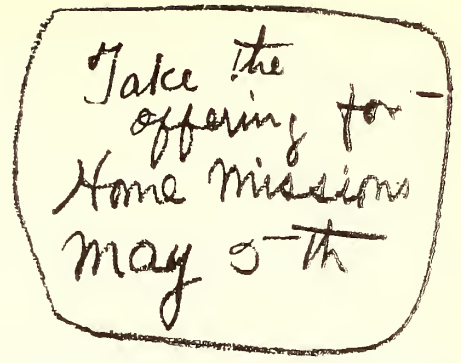 Take the
offering for
Home Missions
May 5th